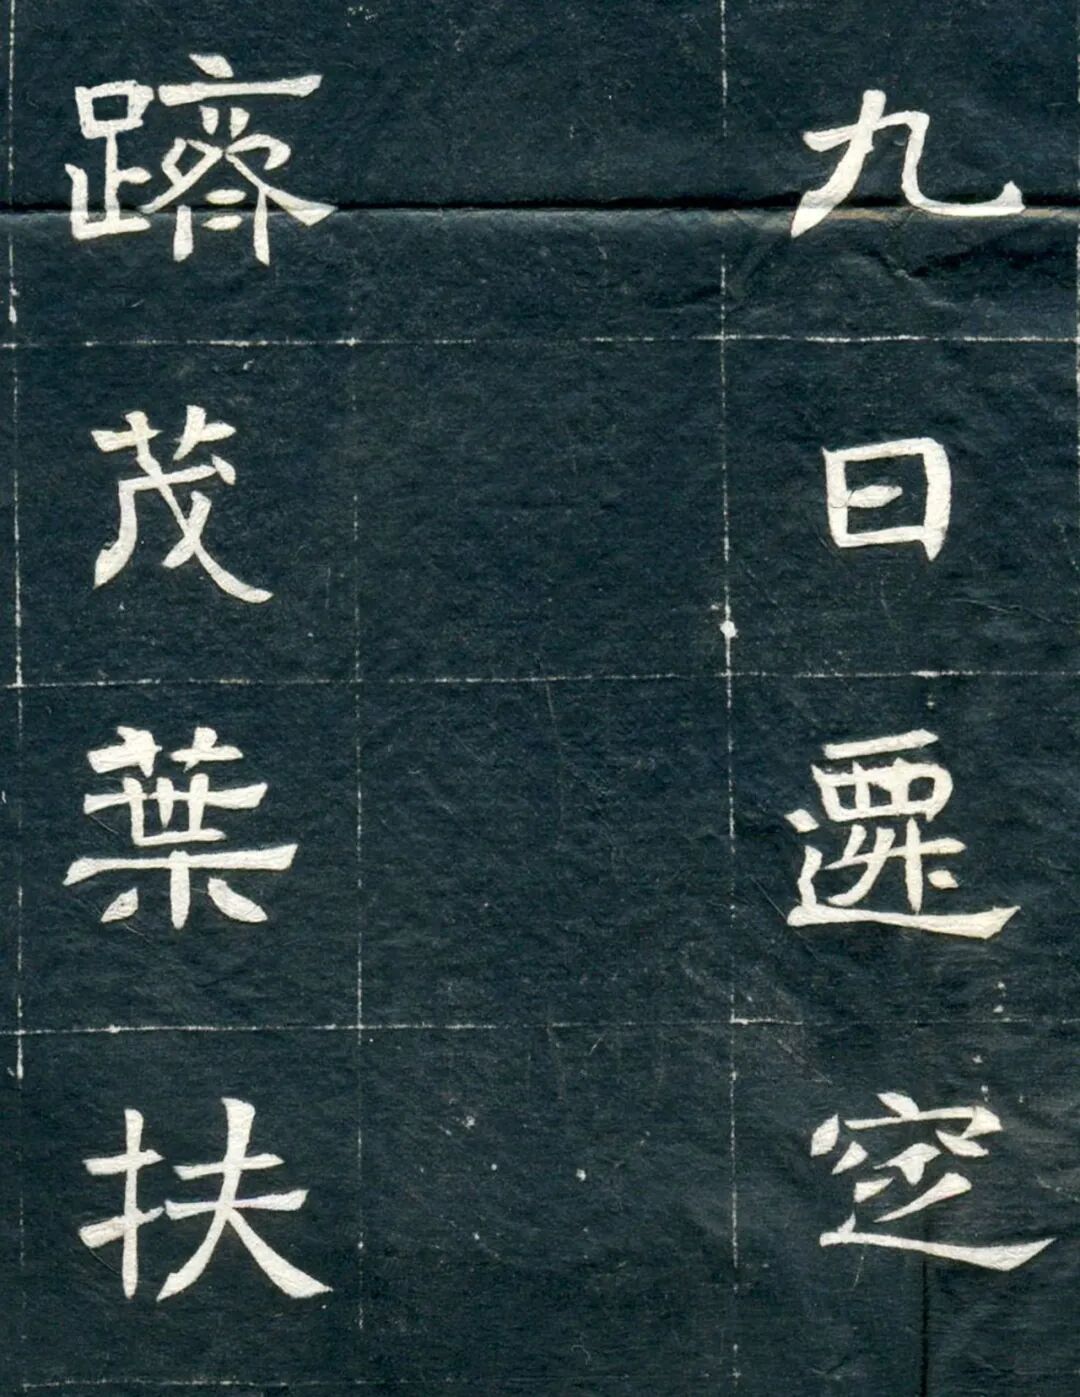 九日遷窆
躋茂葉扶